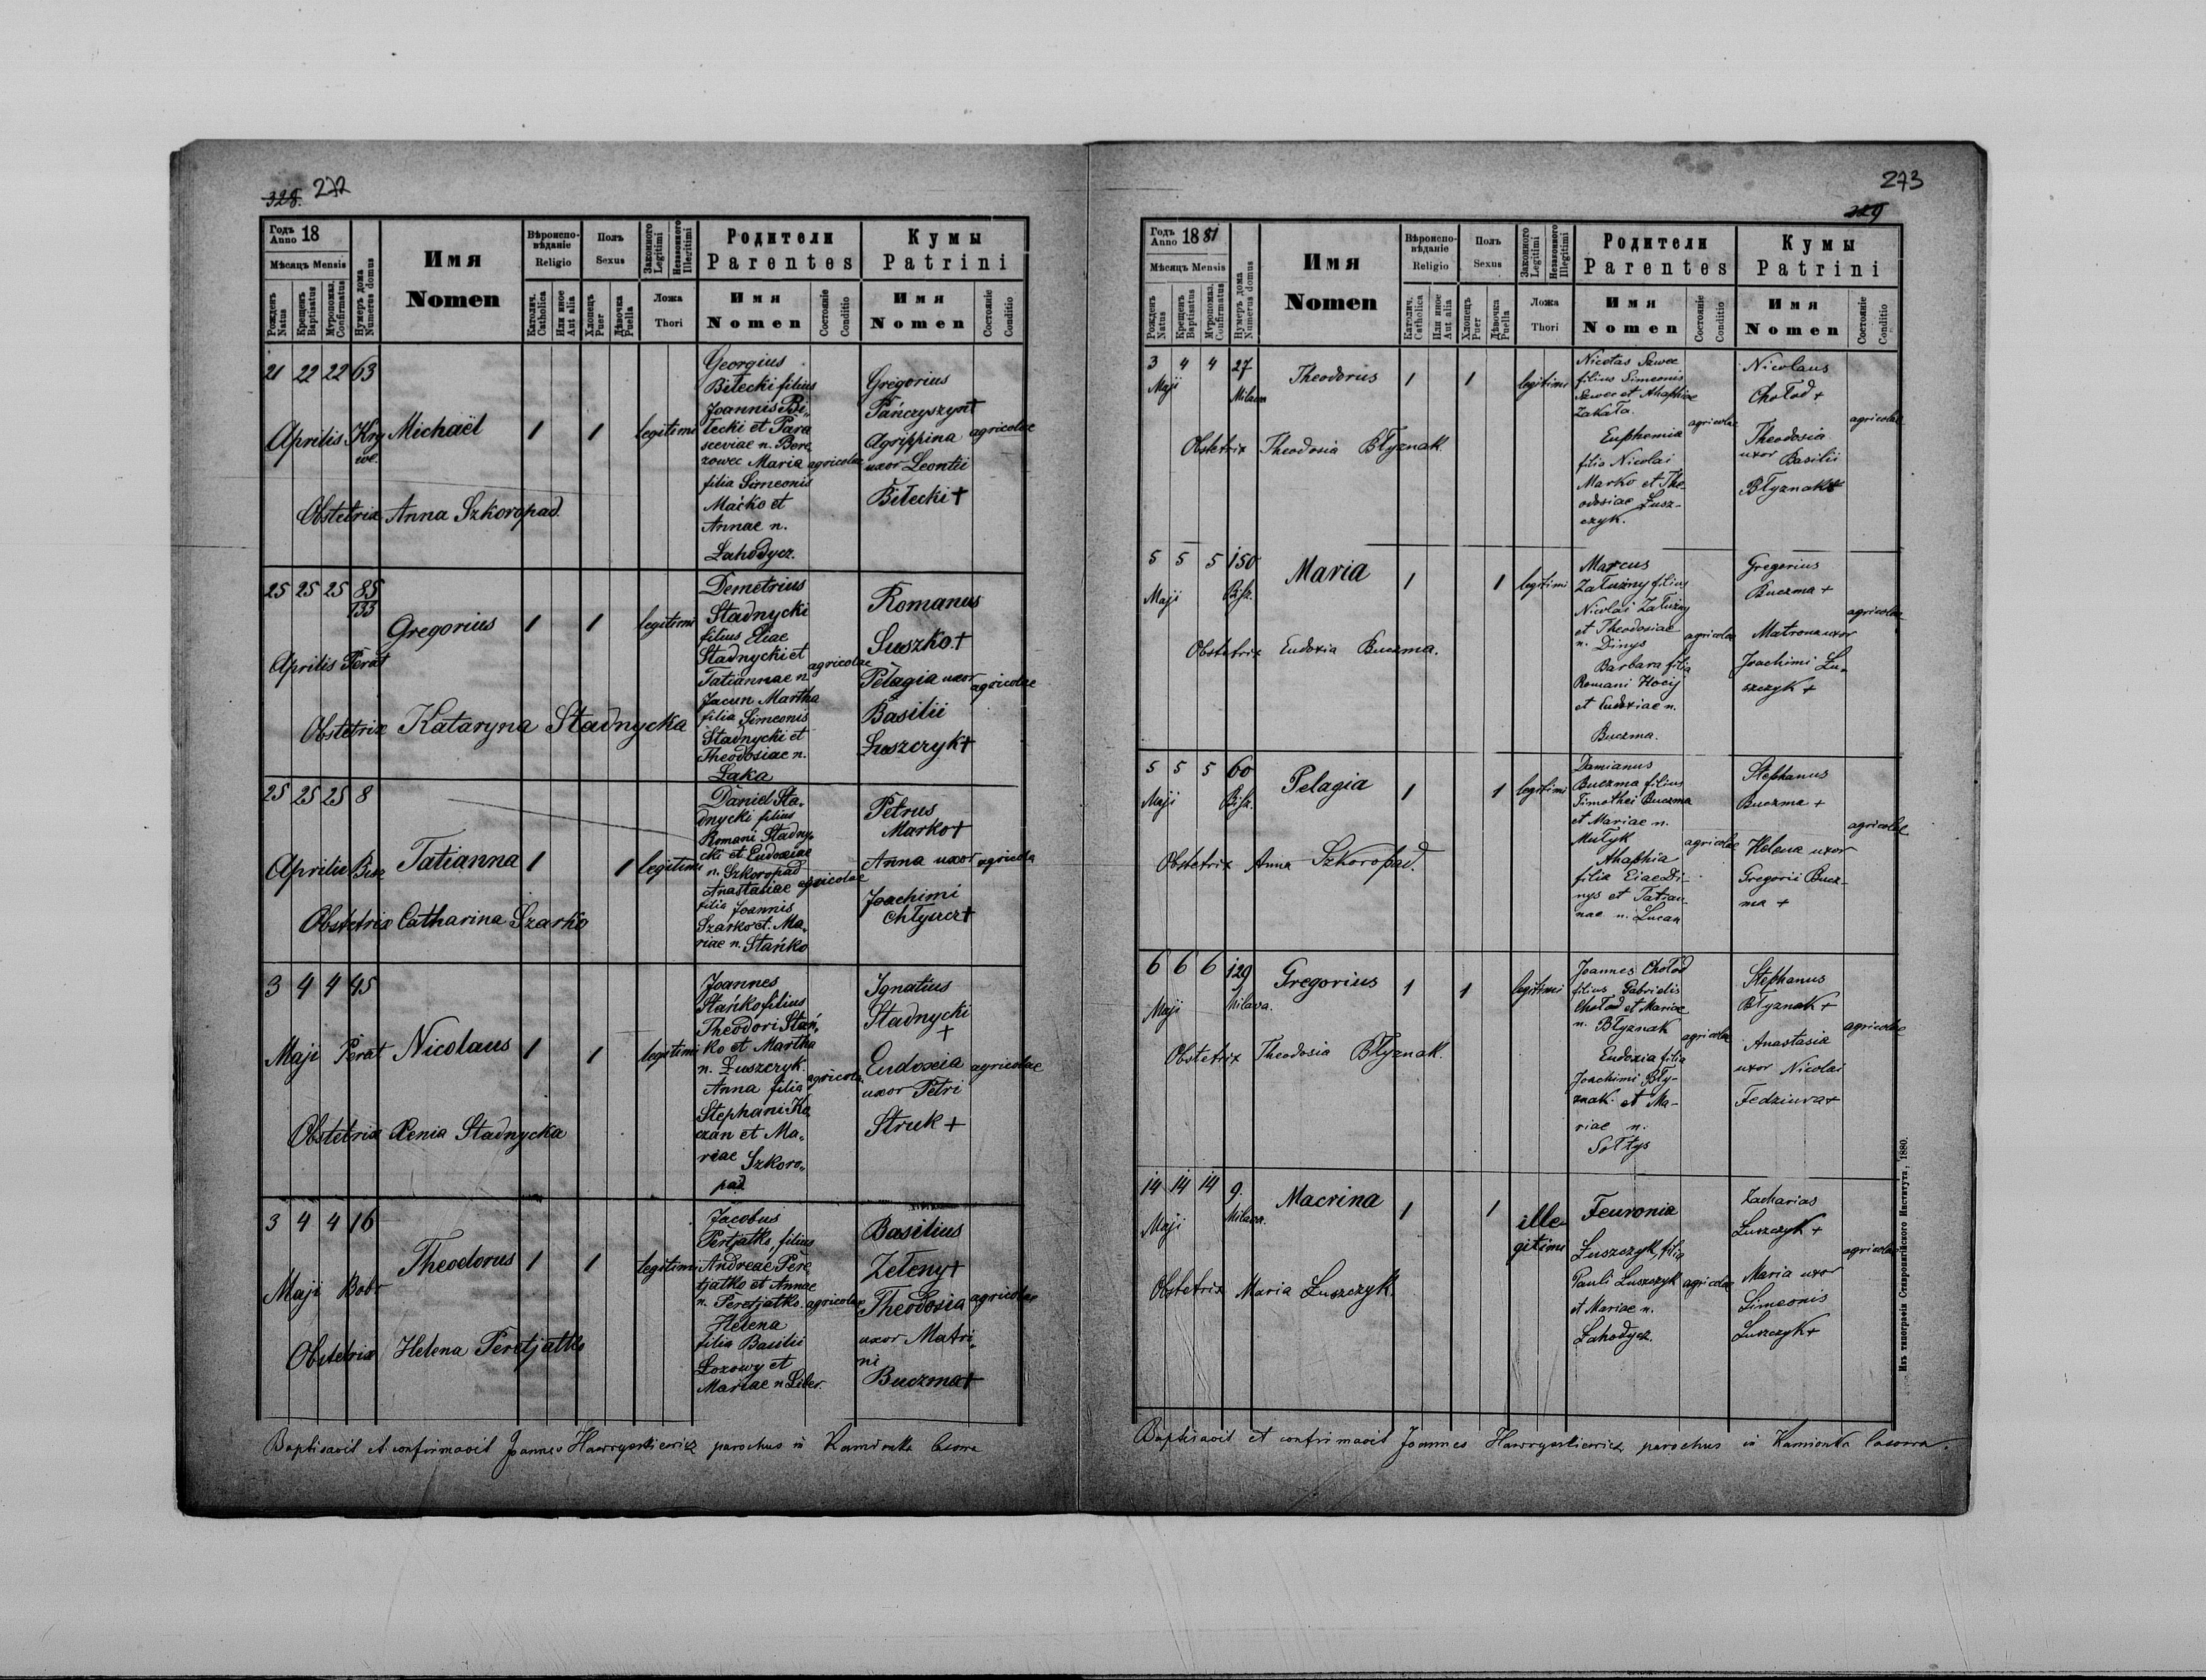 328. 272
Годъ Anno 18
Мѣсяцъ Mensis
Рожденъ Natus
Крещенъ Baptisatus
Мѵропомаз. Confirmatus
Нумеръ дома Numerus domus
Имя Nomen
Вѣроиспо-вѣданіе Religio
Католич. Catholica
Или иное Aut alia
Полъ Sexus
Хлопецъ Puer
Дѣвочка Puella
Законного Legitimi
Незаконного Illegitimi
Ложа Thori
Родители Parentes
Имя Nomen
Состояніе Conditio
Кумы Patrini
Имя Nomen
Состояніе Conditio
21 22 22 63
Aprilis Kry
we.
Michaël 1 1 legitimi
Georgius
Biłecki filius
Joannis Bi„
łecki et Para
sceviae n. Bore
zowec Maria agricolae
filia Simeonis
Maćko et
Annae n.
Łahodycz.
Gregorius
Pańczyszyn +
Agrippina agricolae
uxor Leontii
Biłecki +
Obstetrix Anna Szkoropad.
25 25 25 85
133
Aprilis Perat
Gregorius 1 1 legitimi
Demetrius
Stadnycki
filius Eliae
Stadnycki et
agricolae
Tatiannae n
Jacun Martha
filia Simeonis
Stadnycki et
Theodosiae n.
Łaka
Romanus
Suszko. +
Pelagia uxor
agricolae
Basilii
Łuszczyk +
Obstetrix Kataryna Stadnycka
25 25 25 8
Aprilis Bisz
Tatianna 1 1 legitimi
Daniel Sta„
dnycki filius
Romani Stadny„
cki et Eudoxiae
n. Szkoropad
Anastasiae agricolae
filia Joannis
Szarko et. Ma„
riae n. Stańko
Petrus
Marko +
Anna uxor agricola
Joachimi
Chłyszcz +
Obstetrix Catharina Szarko
3 4 4 45
Maji Perat Nicolaus 1 1 legitimi
Joannes
Stańko filius
Theodori Stań„
ko et Martha
n. Łuszczyk.
Anna filia agricola
Stephani Ka
czan et Ma„
riae Szkoro„
pad
Ignatius
Stadnycki
+
Eudoxia agricolae
uxor Petri
Struk +
Obstetrix Xenia Stadnycka
3 4 4 16
Maji Bobr
Theodorus 1 1 legitimi
Jacobus
Peretjatko filius
Andreae Pere
tjatko et Annae
n. Peretjatko. agricolae
Helena
filia Basilii
Łozowy et
Mariae n Liber.
Basilius
Zełeny +
Theodosia agricolae
uxor Matri„
ni
Buczma +
Obstetrix Helena Peretjatko
Baptisavit et confirmavit Joannes Hawryszkiewicz parochus in Kamionka lasowa
273
329
Годъ Anno 1881
Мѣсяцъ Mensis
Рожденъ Natus
Крещенъ Baptisatus
Мѵропомаз. Confirmatus
Нумеръ дома Numerus domus
Имя Nomen
Вѣроиспо-вѣданіе Religio
Католич. Catholica
Или иное Aut alia
Полъ Sexus
Хлопецъ Puer
Дѣвочка Puella
Законного Legitimi
Незаконного Illegitimi
Ложа Thori
Родители Parentes
Имя Nomen
Состояніе Conditio
Кумы Patrini
Имя Nomen
Состояніе Conditio
3 4 4 27
Maji Milawa
Theodorus 1 1 legitimi
Nicetas Szwec
filius Simeonis
Szwec et Ahaphiae
Zakała.
agricolae
Euphemia
filia Nicolai
Marko et The-
odosiae Łusz-
czyk.
Nicolaus
Chołod +
agricolae
Theodosia
uxor Basilii
Błyznak +
Obstetrix Theodosia Błyznak.
5 5 5 150
Maji Bisz.
Maria 1 1 legitimi
Marcus
Załużny filius
Nicolai Załużny
et Theodosiae
n. Dinys agricolae
Barbara filia
Romani Hocij
et Eudoxiae n.
Buczma.
Gregorius
Buczma +
agricolae
Matrona uxor
Joachimi Łu„
szczyk +
Obstetrix Eudoxia Buczma.
5 5 5 60
Maji Bisz.
Pelagia 1 1 legitimi
Damianus
Buczma filius
Timothei Buczma
et Mariae n.
Mułyk agricolae
Ahaphia
filia Eiae Di-
nys et Tatian-
nae n. Lucan
Stephanus
Buczma +
agricolae
Helena uxor
Gregorii Bucz-
ma +
Obstetrix Anna Szkoropad.
6 6 6 129
Maji Milawa.
Gregorius 1 1 legitimi
Joannes Chołod
filius Gabrielis
Chołod et Mariae
n. Błyznak agricolae
Eudoxia filia
Joachimi Bły-
znak et Ma-
riae n.
Sołtys
Stephanus
Błyznak +
agricolae
Anastasia
uxor Nicolai
Fedziura +
Obstetrix Theodosia Błyznak.
14 14 14 9.
Maji Milawa.
Macrina 1 1 ille-
gitimi
Feuronia
Łuszczyk, filia
Pauli Łuszczyk agricolae
et Mariae n.
Łahodycz.
Zacharias
Łuszczyk +
agricolae
Maria uxor
Simeonis
Łuszczyk +
Obstetrix Maria Łuszczyk.
Baptisavit et confirmavit Joannes Hawryszkiewicz, parochus in Kamionka lasowa.
Изъ типографіи Ставропигійского Института, 1880.